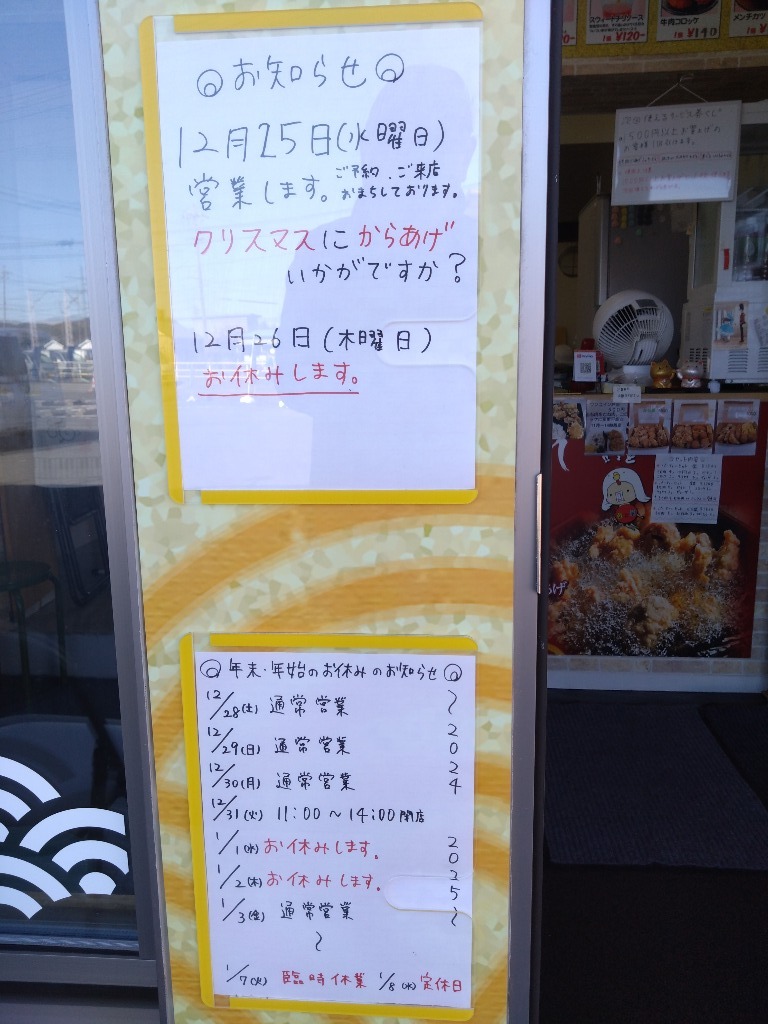 ◎お知らせ◎
12月25日(水曜日)
営業します。ご予約、ご来店
おまちしております。
クリスマスにからあげ
いかがですか?
12月26日(木曜日)
お休みします。
◎年末・年始のお休みのお知らせ◎
12/28(土) 通常営業
12/29(日) 通常営業
12/30(月) 通常営業
12/31(火) 11:00~14:00閉店
1/1(水)お休みします。
1/2(木)お休みします。
1/3(金) 通常営業
~
1/7(火) 臨時休業 1/8(水)定休日
~2024
2025~
スウィートチリソース
1個 ¥120-
牛肉コロッケ
1個 ¥140
メンチカツ
500円以上お買上げの